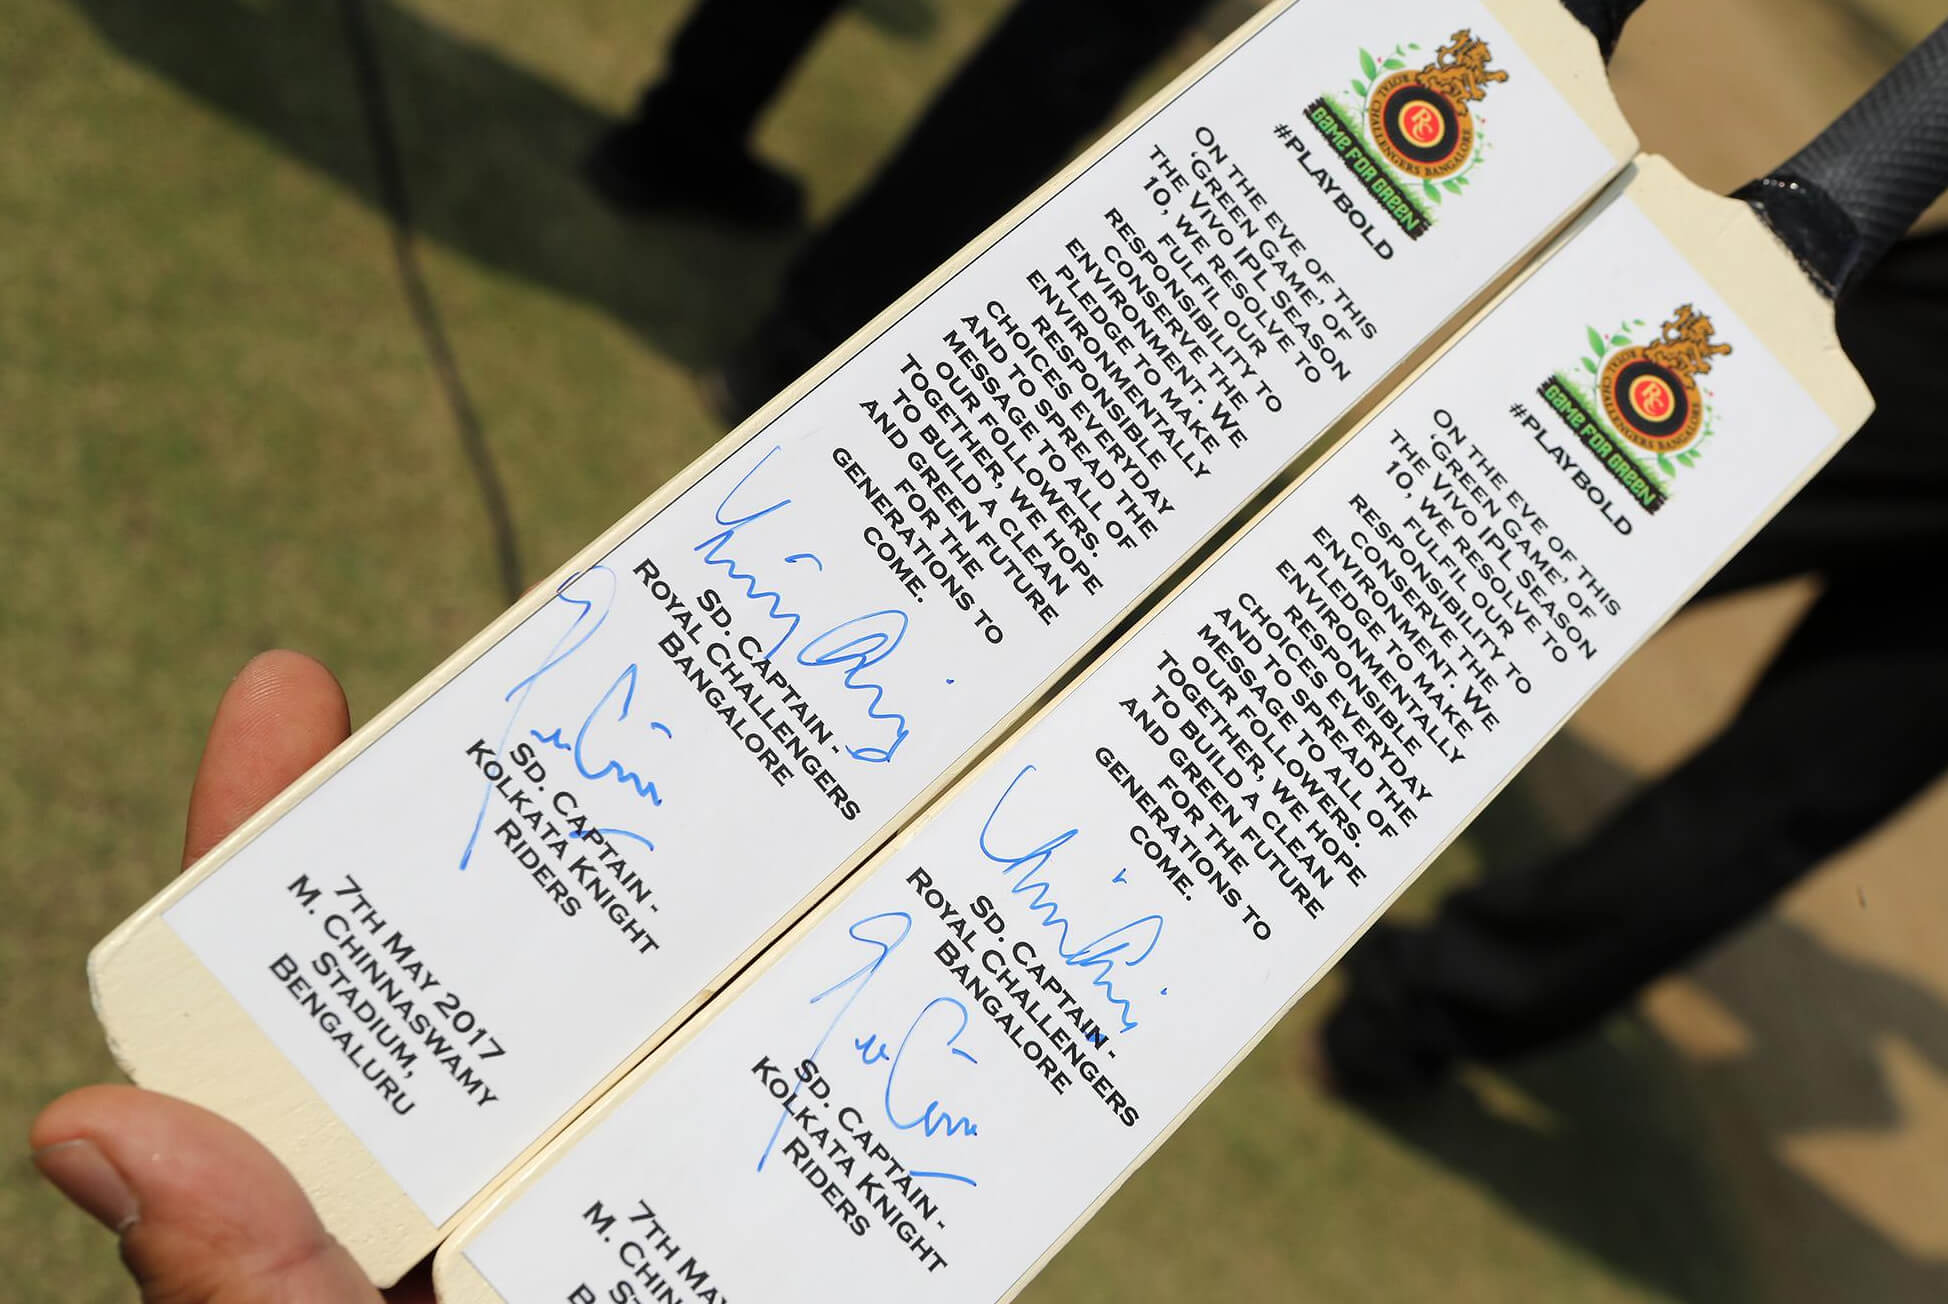 ROYAL CHALLENGERS BANGALORE
RC
GAME FOR GREEN
#PLAYBOLD
ON THE EVE OF THIS
‘GREEN GAME’, OF
THE VIVO IPL SEASON
10, WE RESOLVE TO
FULFIL OUR
RESPONSIBILITY TO
CONSERVE THE
ENVIRONMENT. WE
PLEDGE TO MAKE
ENVIRONMENTALLY
RESPONSIBLE
CHOICES EVERYDAY
AND TO SPREAD THE
MESSAGE TO ALL OF
OUR FOLLOWERS.
TOGETHER, WE HOPE
TO BUILD A CLEAN
AND GREEN FUTURE
FOR THE
GENERATIONS TO
COME.
SD. CAPTAIN -
ROYAL CHALLENGERS
BANGALORE
SD. CAPTAIN -
KOLKATA KNIGHT
RIDERS
7TH MAY 2017
M. CHINNASWAMY
STADIUM,
BENGALURU
ROYAL CHALLENGERS BANGALORE
RC
GAME FOR GREEN
#PLAYBOLD
ON THE EVE OF THIS
‘GREEN GAME’, OF
THE VIVO IPL SEASON
10, WE RESOLVE TO
FULFIL OUR
RESPONSIBILITY TO
CONSERVE THE
ENVIRONMENT. WE
PLEDGE TO MAKE
ENVIRONMENTALLY
RESPONSIBLE
CHOICES EVERYDAY
AND TO SPREAD THE
MESSAGE TO ALL OF
OUR FOLLOWERS.
TOGETHER, WE HOPE
TO BUILD A CLEAN
AND GREEN FUTURE
FOR THE
GENERATIONS TO
COME.
SD. CAPTAIN -
ROYAL CHALLENGERS
BANGALORE
SD. CAPTAIN -
KOLKATA KNIGHT
RIDERS
7TH MAY
M. CHIN